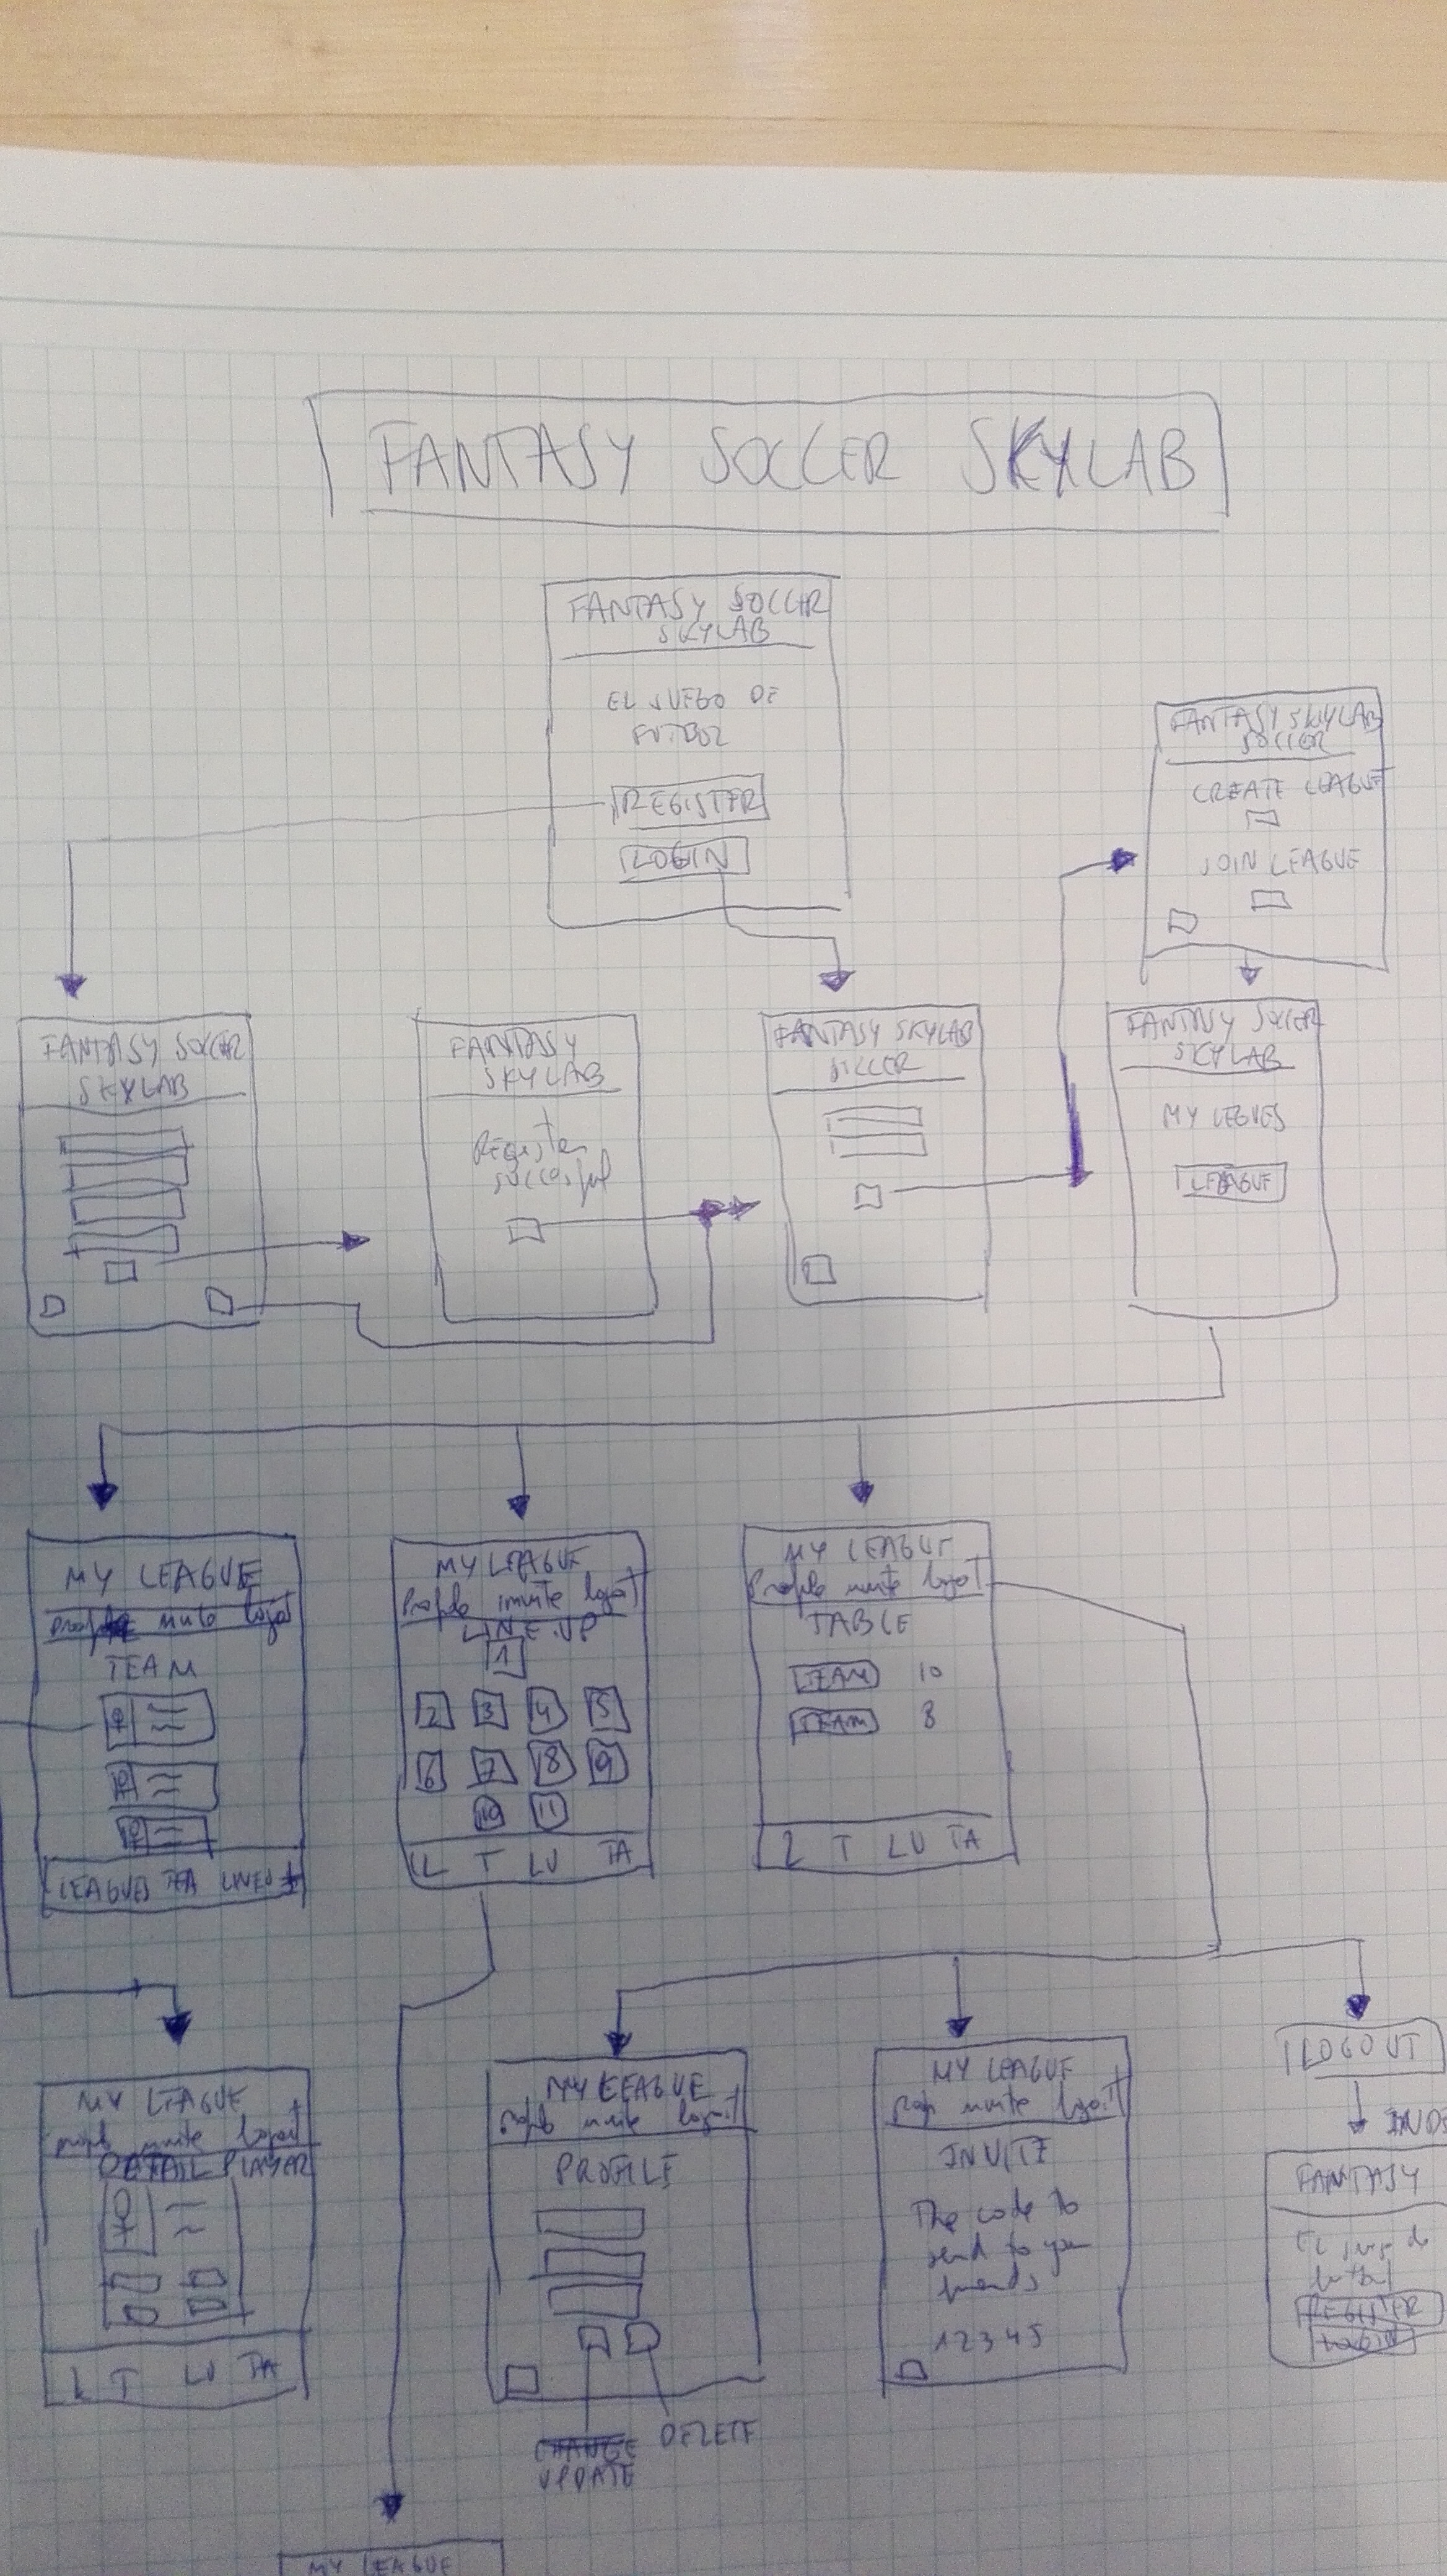 FANTASY SOCCER SKYLAB
FANTASY SOCCER
SKYLAB
EL JUEGO DE
FUTBOL
REGISTER
LOGIN
FANTASY SKYLAB
SOCCER
CREATE LEAGUE
JOIN LEAGUE
FANTASY SOCCER
SKYLAB
FANTASY
SKYLAB
Register
successful
FANTASY SKYLAB
SOCCER
FANTASY SOCCER
SKYLAB
MY LEGUES
LEAGUE
MY LEAGUE
invite logout
TEAM
LEAGUES TEA LINEU
MY LEAGUE
Profile invite logout
LINE UP
1
2 3 4 5
6 7 8 9
10 11
L T LU TA
MY LEAGUE
Profile invite logout
TABLE
TEAM 10
TEAM 8
L T LU TA
MY LEAGUE
profile invite logout
DETAIL PLAYER
L T LU TA
MY LEAGUE
profile invite logout
PROFILE
CHANGE
UPDATE
DELETE
MY LEAGUE
invite logout
INVITE
The code to
send to your
friends
12345
LOGOUT
FANTASY
El juego de
futbol
REGISTER
LOGIN
MY LEAGUE